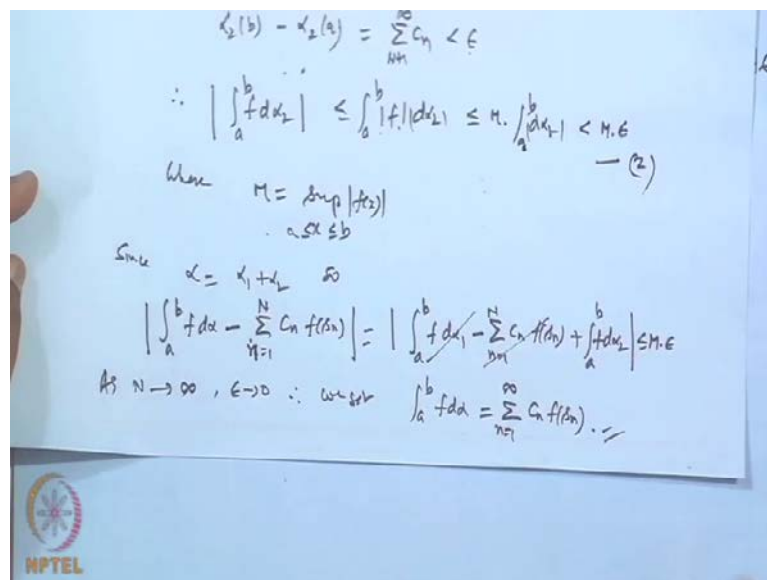 α₂(b) − α₂(a) = ∑_{N+1}^{∞} Cₙ < ε
∴ | ∫_a^b f dα₂ | ≤ ∫_a^b |f| |dα₂| ≤ M. ∫_a^b |dα₂| < M.ε
— (2)
Where M = Sup |f(x)|
a ≤ x ≤ b
Since α = α₁+α₂ So
| ∫_a^b f dα − ∑_{n=1}^{N} Cₙ f(sₙ) | = | ∫_a^b f dα₁ − ∑_{n=1}^{N} Cₙ f(sₙ) + ∫_a^b f dα₂ | ≤ M.ε
As N → ∞, ε→0 ∴ we get ∫_a^b f dα = ∑_{n=1}^{∞} Cₙ f(sₙ).
NPTEL